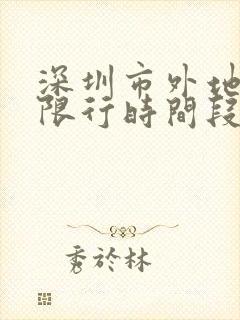 深圳市外地
限行時間段
秀於林